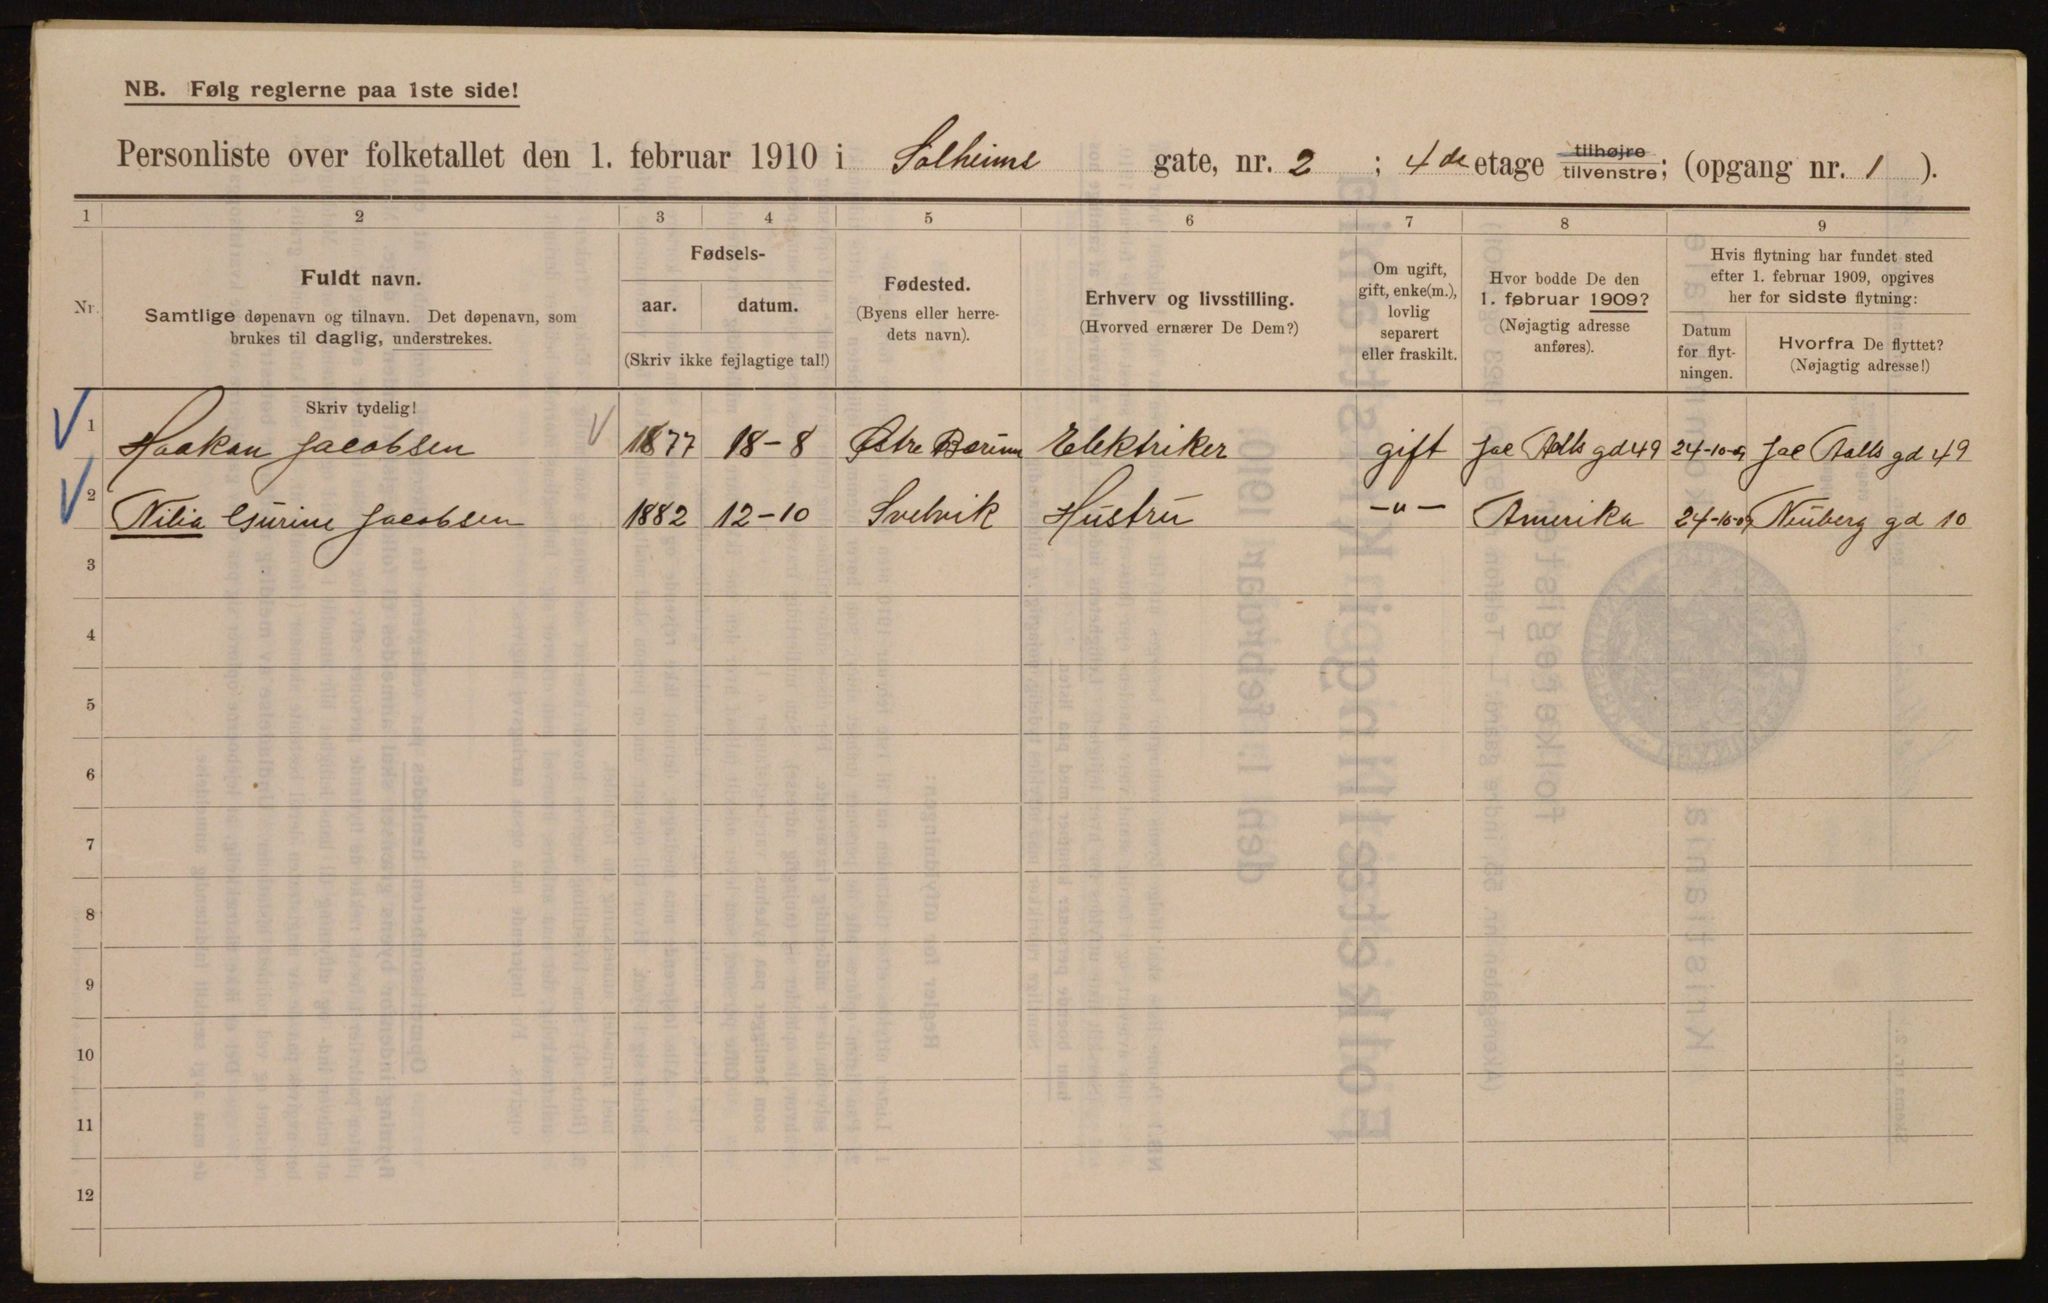 NB. Følg reglerne paa 1ste side!
Personliste over folketallet den 1. februar 1910 i Solheims gate, nr. 2 ; 4de etage tilhøjre tilvenstre; (opgang nr. 1 ).
1 2 3 4 5 6 7 8 9
Nr.
Fuldt navn.
Samtlige døpenavn og tilnavn. Det døpenavn, som
brukes til daglig, understrekes.
Fødsels-
aar. datum.
(Skriv ikke fejlagtige tal!)
Fødested.
(Byens eller herre-
dets navn).
Erhverv og livsstilling.
(Hvorved ernærer De Dem?)
Om ugift,
gift, enke(m.),
lovlig
separert
eller fraskilt.
Hvor bodde De den
1. februar 1909?
(Nøjagtig adresse
anføres).
Hvis flytning har fundet sted
efter 1. februar 1909, opgives
her for sidste flytning:
Datum
for flyt-
ningen.
Hvorfra De flyttet?
(Nøjagtig adresse!)
Skriv tydelig!
1 Haakon Jacobsen 1877 18-8 Østre Bærum Elektriker gift Jac Aalls gd 49 24-10-09 Jac Aalls gd 49
2 Nilia Gurine Jacobsen 1882 12-10 Svelvik Hustru -"- Amerika 24-10-09 Neuberg gd 10
3
4
5
6
7
8
9
10
11
12